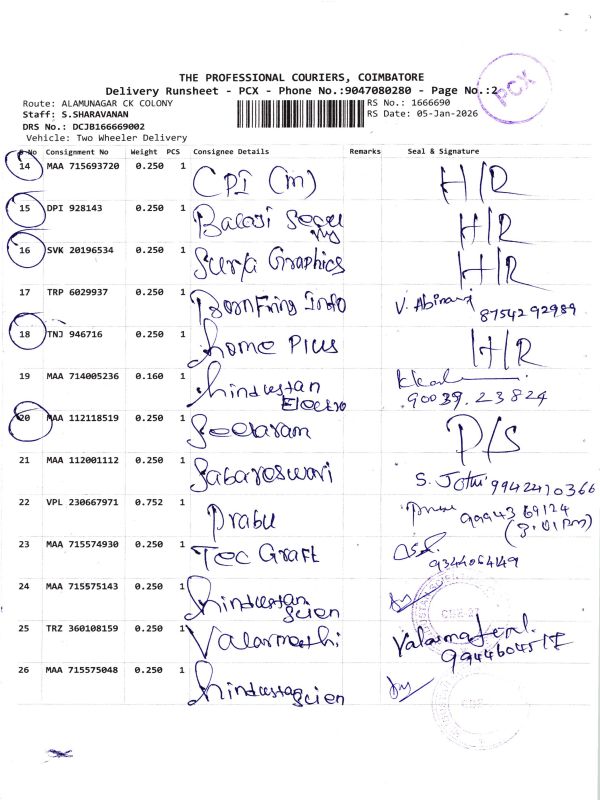 THE PROFESSIONAL COURIERS, COIMBATORE
Delivery Runsheet - PCX - Phone No.:9047080280 - Page No.:2
PCX
Route: ALAMUNAGAR CK COLONY
RS No.: 1666690
Staff: S.SHARAVANAN
RS Date: 05-Jan-2026
DRS No.: DCJB166669002
Vehicle: Two Wheeler Delivery
S No Consignment No Weight PCS Consignee Details Remarks Seal & Signature
14 MAA 715693720 0.250 1 CPI (M) H/R
15 DPI 928143 0.250 1 Balaji H/R
16 SVK 20196534 0.250 1 Surya Graphics H/R
17 TRP 6029937 0.250 1 Info V. Abinaya 8754292989
18 TNJ 946716 0.250 1 Home Plus H/R
19 MAA 714005236 0.160 1 Hindustan
Electro 90039.23824
20 MAA 112118519 0.250 1 Seetaram P/S
21 MAA 112001112 0.250 1 Sabareswari S. Jothi 9942410366
22 VPL 230667971 0.752 1 Prabu 9994369124
23 MAA 715574930 0.250 1 Tec Graft 9344064149
24 MAA 715575143 0.250 1 Hindustan
Scien
25 TRZ 360108159 0.250 1 Valarmathi
26 MAA 715575048 0.250 1 Hindustan
Scien